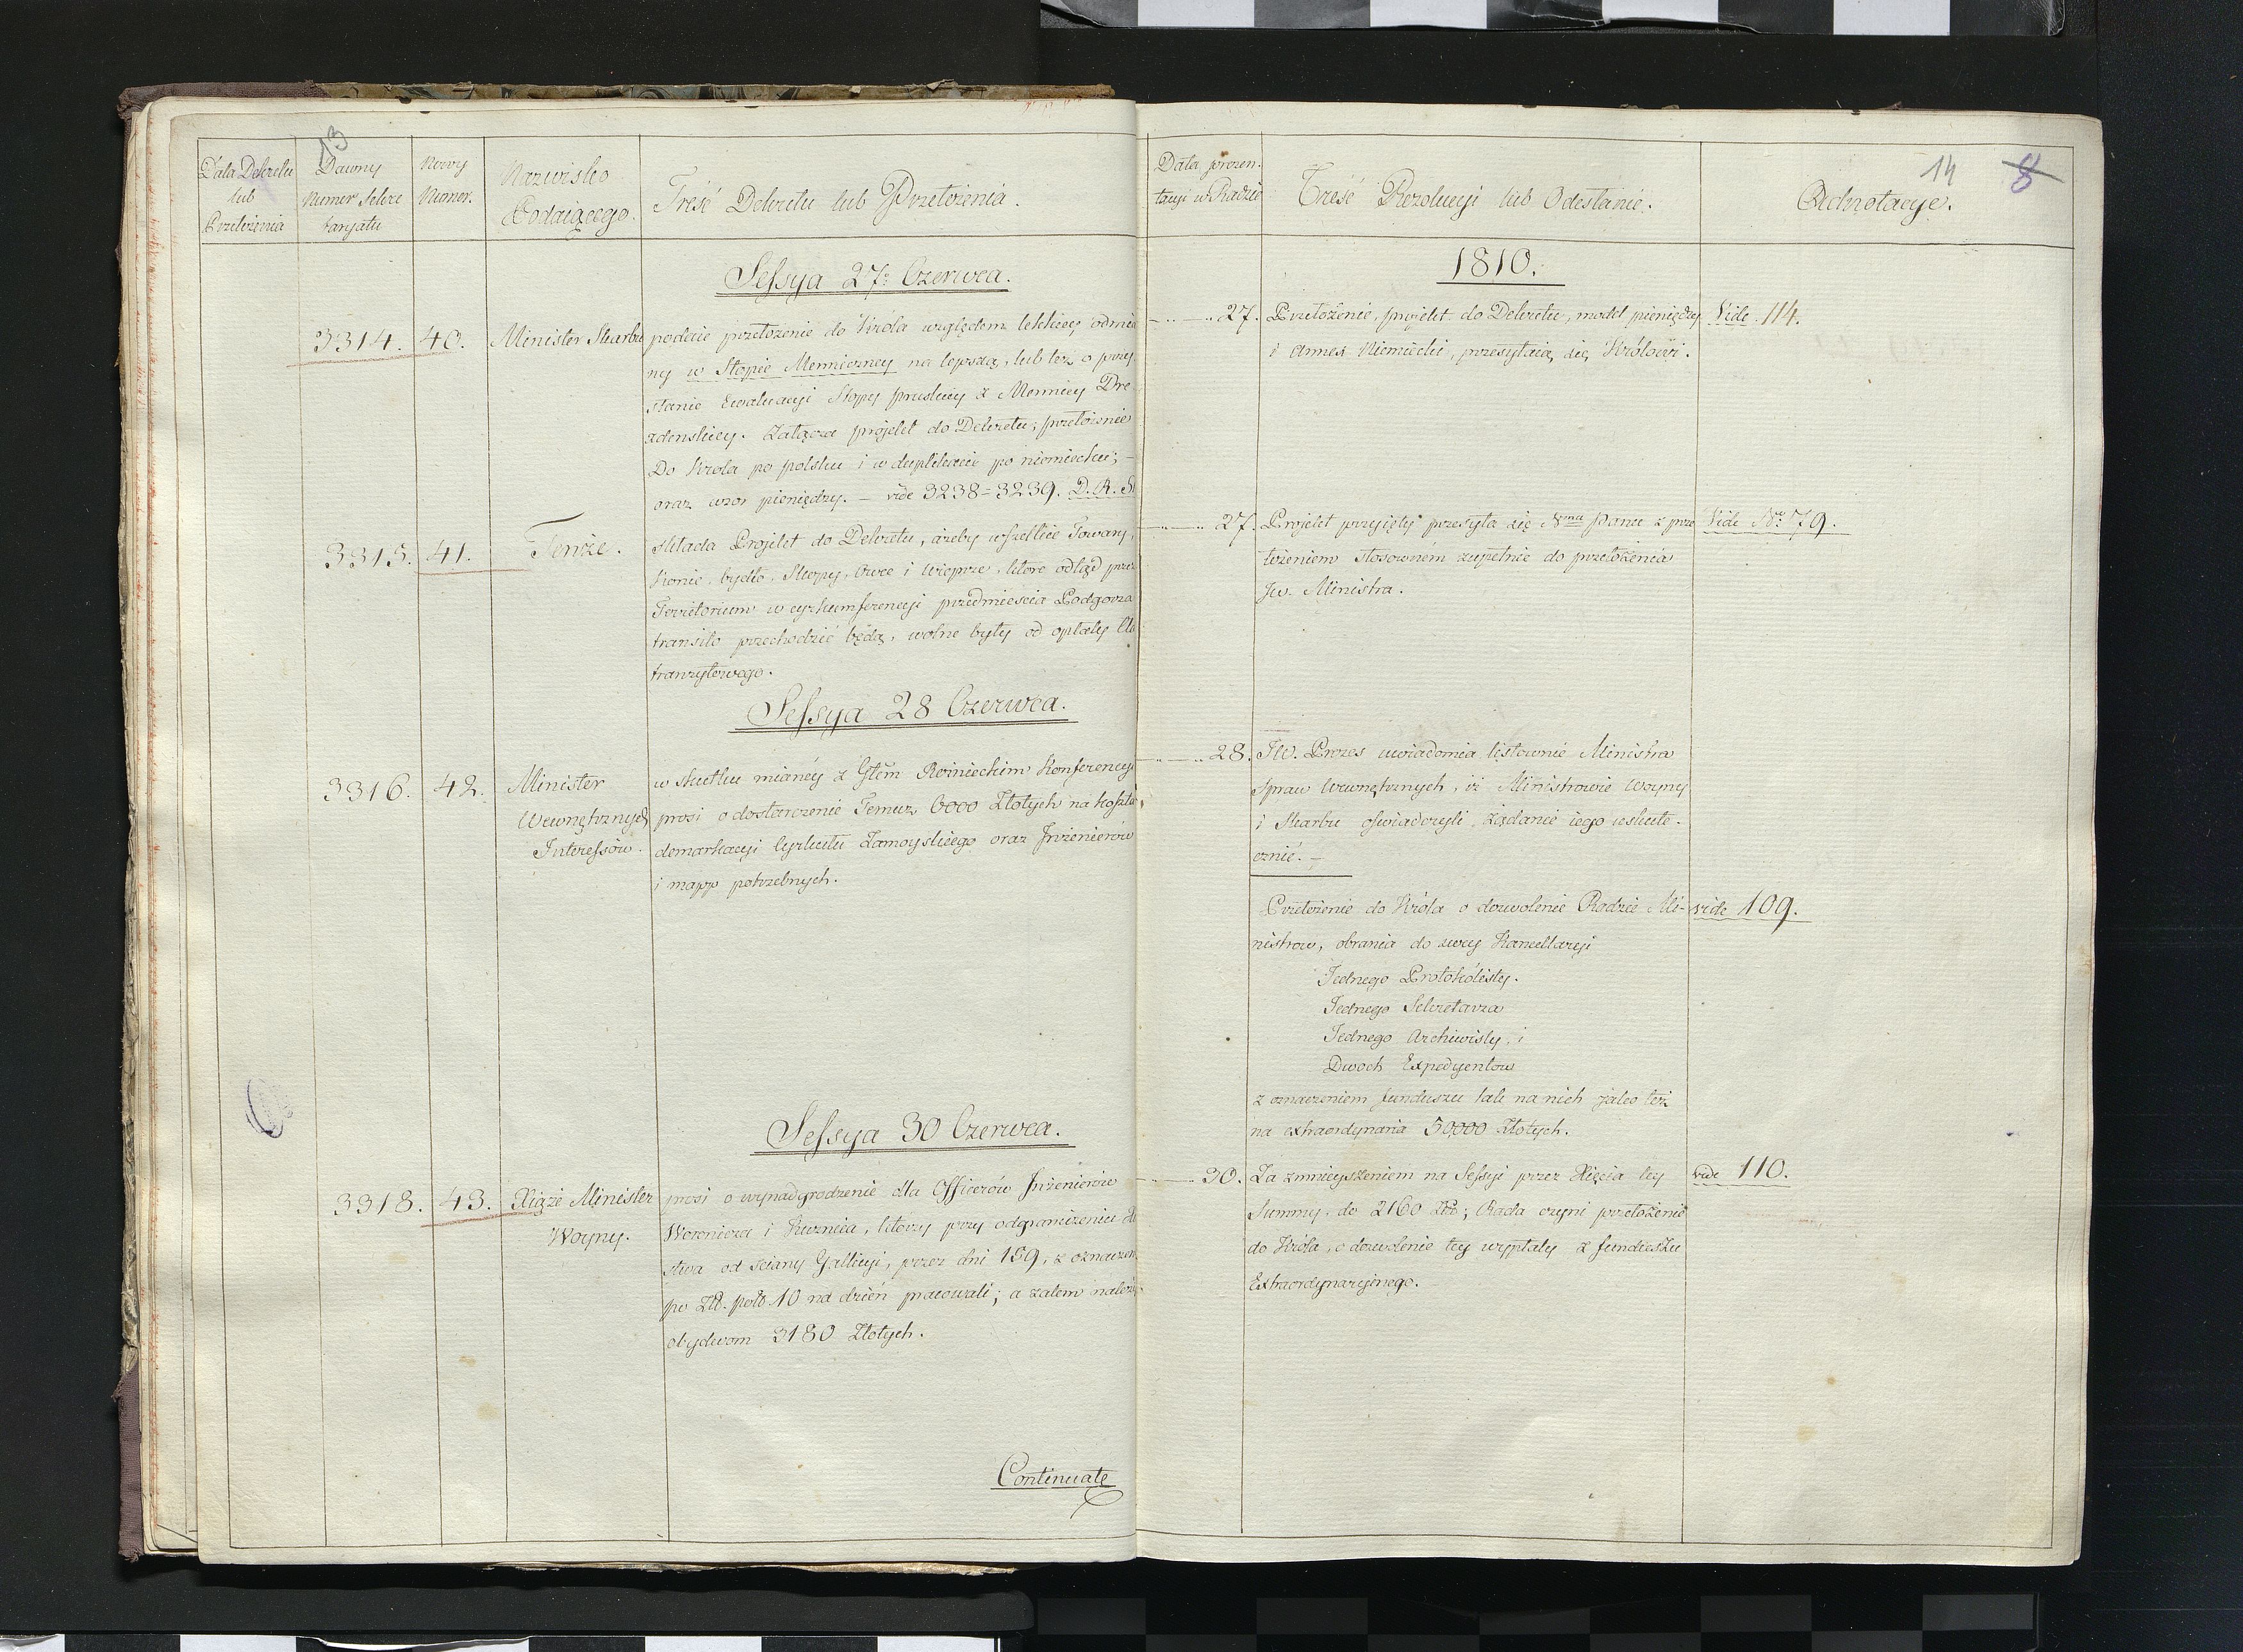 13
Data Dekretu
lub
Przełożenia
Dawny
Numer Sekre
taryatu
Nowy
Numer.
Nazwisko
Podaiącego.
Treść Dekretu lub Przełożenia.
Sessya 27. Czerwca.
3314. 40. Minister Skarbu
podaie przełożenie do Króla względem lekkiey odmia
ny w Stopie Menniczney na lepszą, lub też o przy
stanie Ewaluacyi Stopy pruskiey z Mennicy Dre
zdenskiey. Załącza projekt do Dekretu; przełożenie
Do Krola po polsku i w duplikacie po niemiecku; –
oraz wzor pieniędzy. – vide 3238=3239. D. R. St
3315. 41. Tenże.
składa Projekt do Dekretu, ażeby wszelkie Towary,
Konie, bydło, Skopy, Owce i Wieprze, ktore odtąd prze
Territorium w cyrkumferencyi przedmiescia Podgorza
transito przechodzić będą, wolne były od opłaty Cła
tranzytowego.
Sessya 28 Czerwca.
3316. 42. Minister
Wewnętrznych
Interessow.
w skutku mianéy z Głem Rożnieckim Konferencyi
prosi o dostarczenie Temuż 6000 Złotych na koszta
demarkacyi Cyrkułu Zamoyskiego oraz Inżenierów
i mapp potrzebnych.
Sessya 30 Czerwca.
3318. 43. Xiąże Minister
Woyny.
prosi o wynadgrodzenie dla Officerów Inżenierów
Woronicza i Kuznica, ktorzy przy odgraniczeniu
stwa od sciany Gallicyi, przez dni 159, z oznaczen
po Zł. pol. 10 na dzień pracowali; a zatem należy
obydwom 3180 Złotych.
Continuatę
Data prezen.
tacyi w Radzie
Treść Rezolucyi lub Odesłanie.
Adnotacye.
14 8
1810.
27. Przełożenie, projekt do Dekretu, model pieniędzy
i Annex Niemiecki, przesyłaią się Królowi.
Vide 114.
27. Projekt przyięty przesyła się Nmu Panu z prze
łożeniem stosowném zupełnie do przełożenia
Jw. Ministra.
Vide No 79.
28. JW. Prezes uwiadomia listownie Ministra
Spraw Wewnętrznych, iż Ministrowie Woyny
i Skarbu oświadczyli żądanie iego uskute-
cznić. –
Przełożenie do Króla o dozwolenie Radzie Mi-
nistrow, obrania do swey Kancellaryi
Jednego Protokólisty.
Jednego Sekretarza
Jednego Archiwisty, i
Dwoch Expedyentow
z oznaczeniem funduszu tak na nich jako też
na extraordynaria 50,000 Złotych.
vide 109.
30. Za zmnieyszeniem na Sessyi przez Xięcia tey
Summy, do 2160 Zł; Rada czyni przełożenie
do Króla, o dozwolenie tey wypłaty z funduszu
Extraordynaryinego.
vide 110.